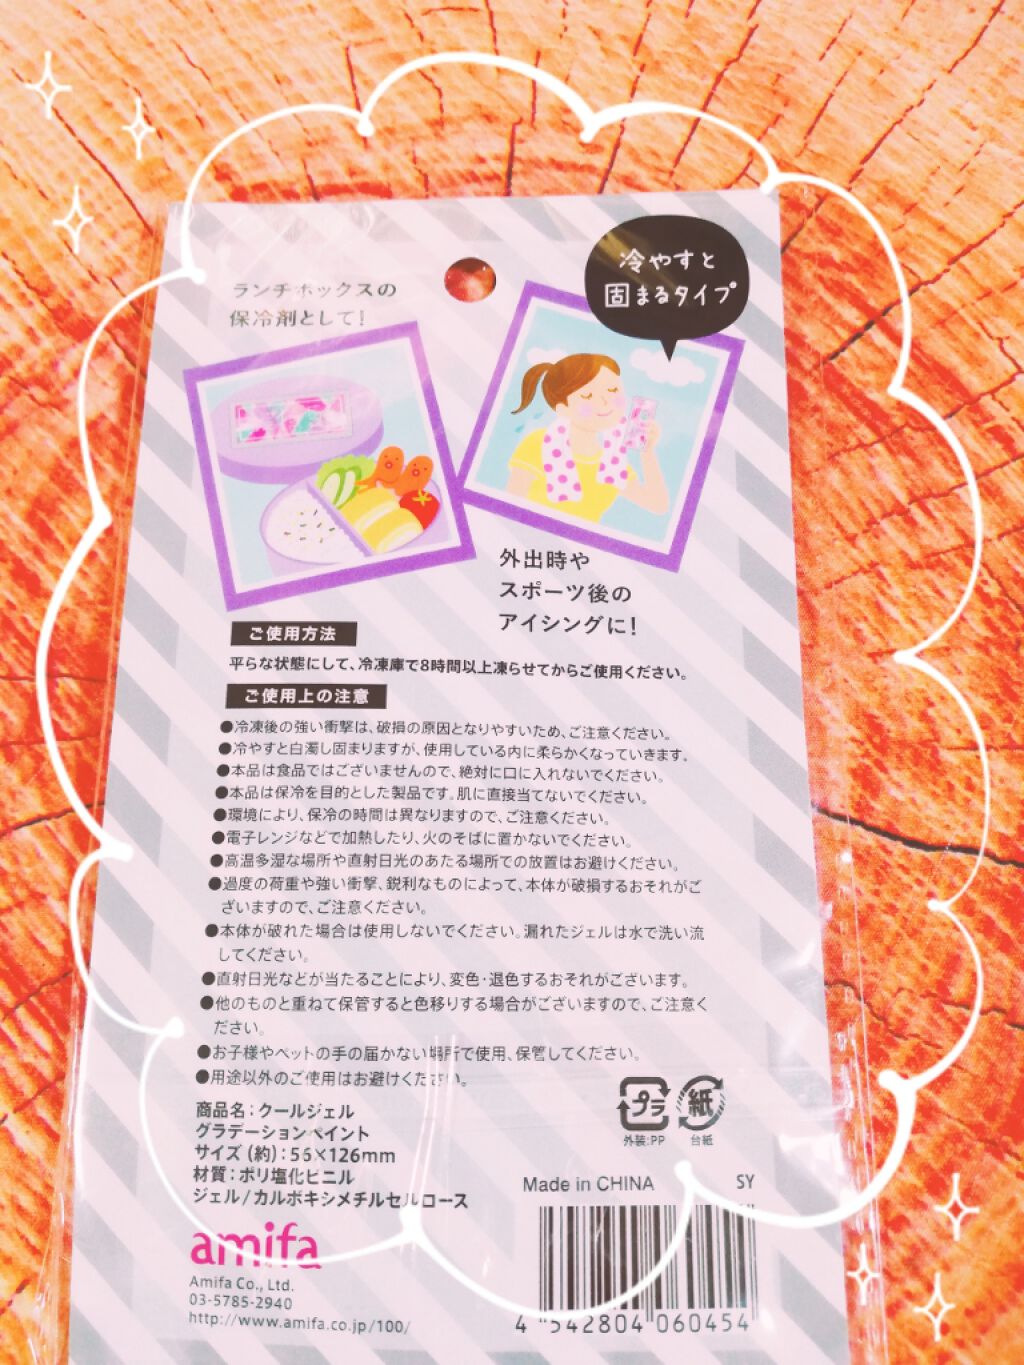 冷やすと
固まるタイプ
ランチボックスの
保冷剤として!
外出時や
スポーツ後の
アイシングに!
ご使用方法
平らな状態にして、冷凍庫で8時間以上凍らせてからご使用ください。
ご使用上の注意
●冷凍後の強い衝撃は、破損の原因となりやすいため、ご注意ください。
●冷やすと白濁し固まりますが、使用している内に柔らかくなっていきます。
●本品は食品ではございませんので、絶対に口に入れないでください。
●本品は保冷を目的とした製品です。肌に直接当てないでください。
●環境により、保冷の時間は異なりますので、ご注意ください。
●電子レンジなどで加熱したり、火のそばに置かないでください。
●高温多湿な場所や直射日光のあたる場所での放置はお避けください。
●過度の荷重や強い衝撃、鋭利なものによって、本体が破損するおそれがご
ざいますので、ご注意ください。
●本体が破れた場合は使用しないでください。漏れたジェルは水で洗い流
してください。
●直射日光などが当たることにより、変色・退色するおそれがございます。
●他のものと重ねて保管すると色移りする場合がございますので、ご注意く
ださい。
●お子様やペットの手の届かない場所で使用、保管してください。
●用途以外のご使用はお避けください。
商品名:クールジェル
グラデーションペイント
サイズ(約):56×126mm
材質:ポリ塩化ビニル
ジェル/カルボキシメチルセルロース
プラ
外装:PP
紙
台紙
Made in CHINA SY
amifa
Amifa Co., Ltd.
03-5785-2940
http://www.amifa.co.jp/100/
4 542804 060454